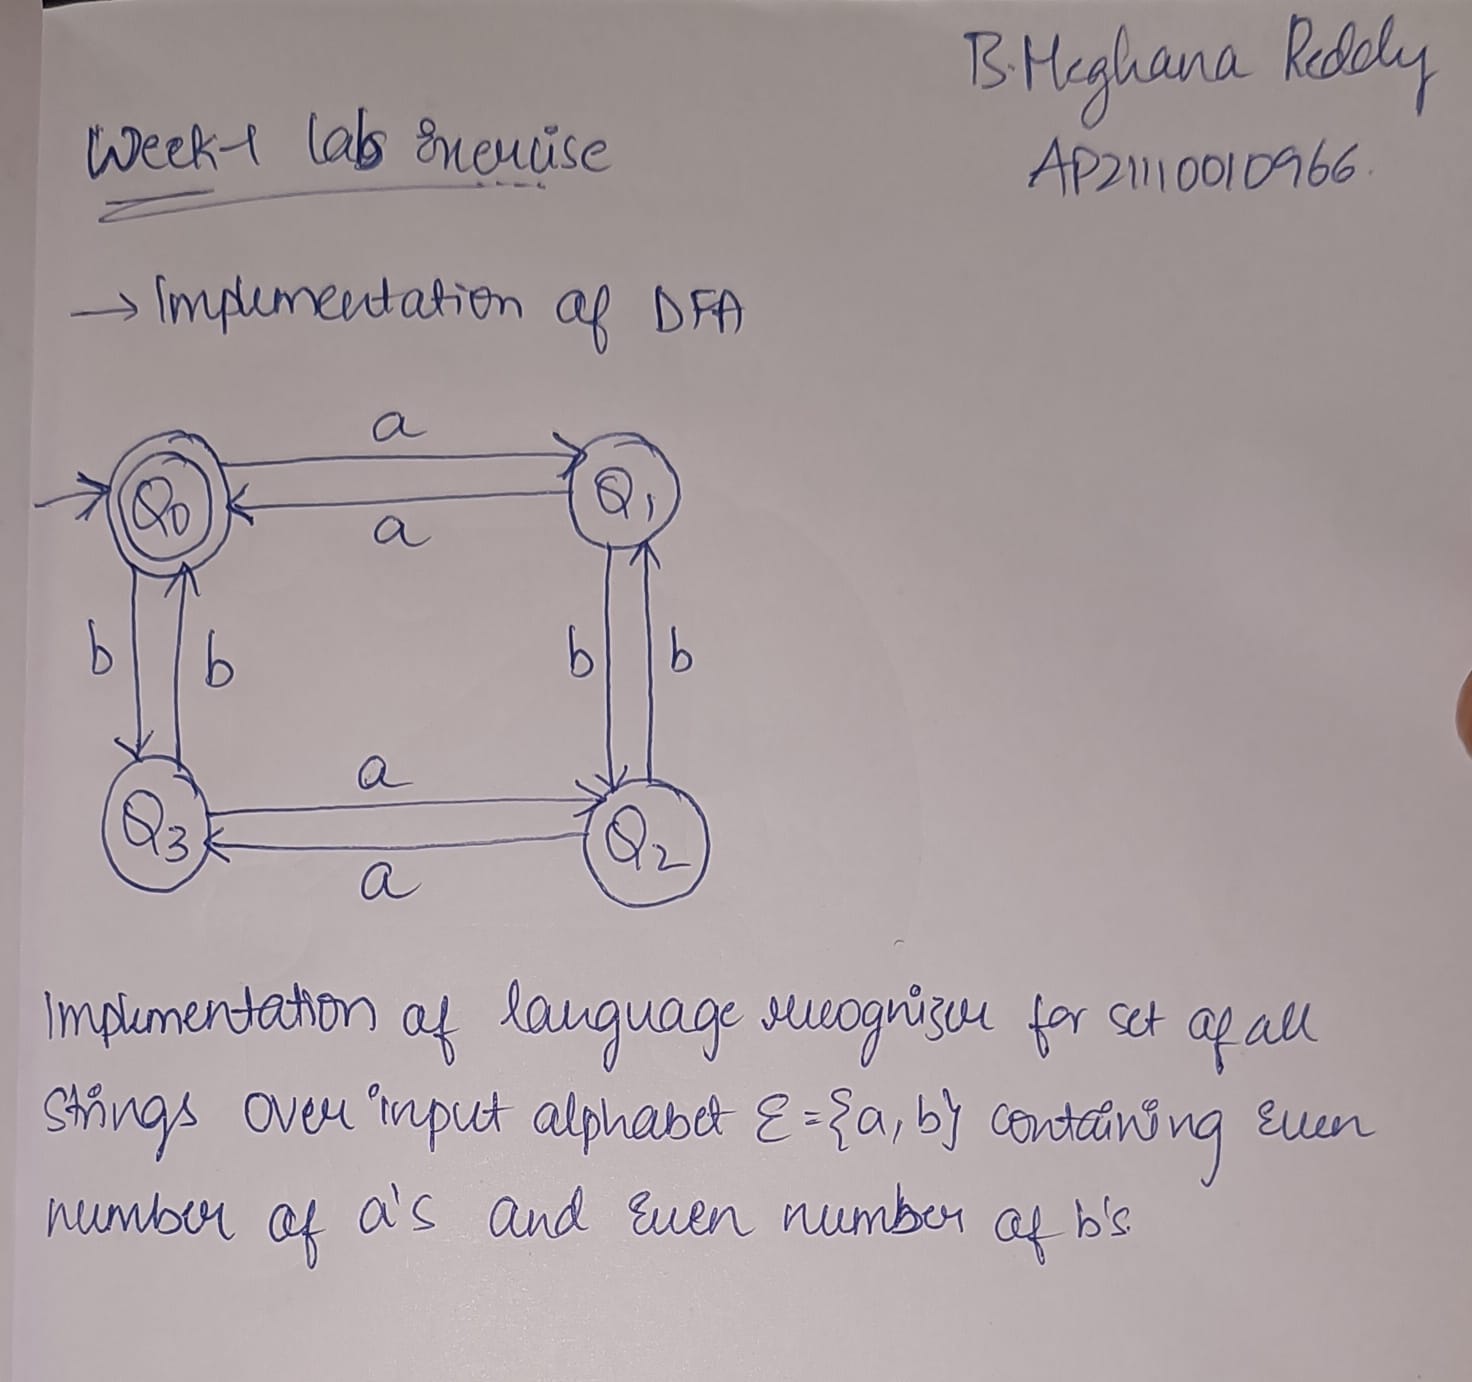 B. Meghana Reddy
AP21110010966.
Week-1 lab Exercise
→ Implementation of DFA
a
Q0
Q1
a
b
b
b
b
a
Q3
Q2
a
Implementation of language recognizer for set of all
strings over input alphabet Σ={a,b} containing Even
number of a's and Even number of b's.